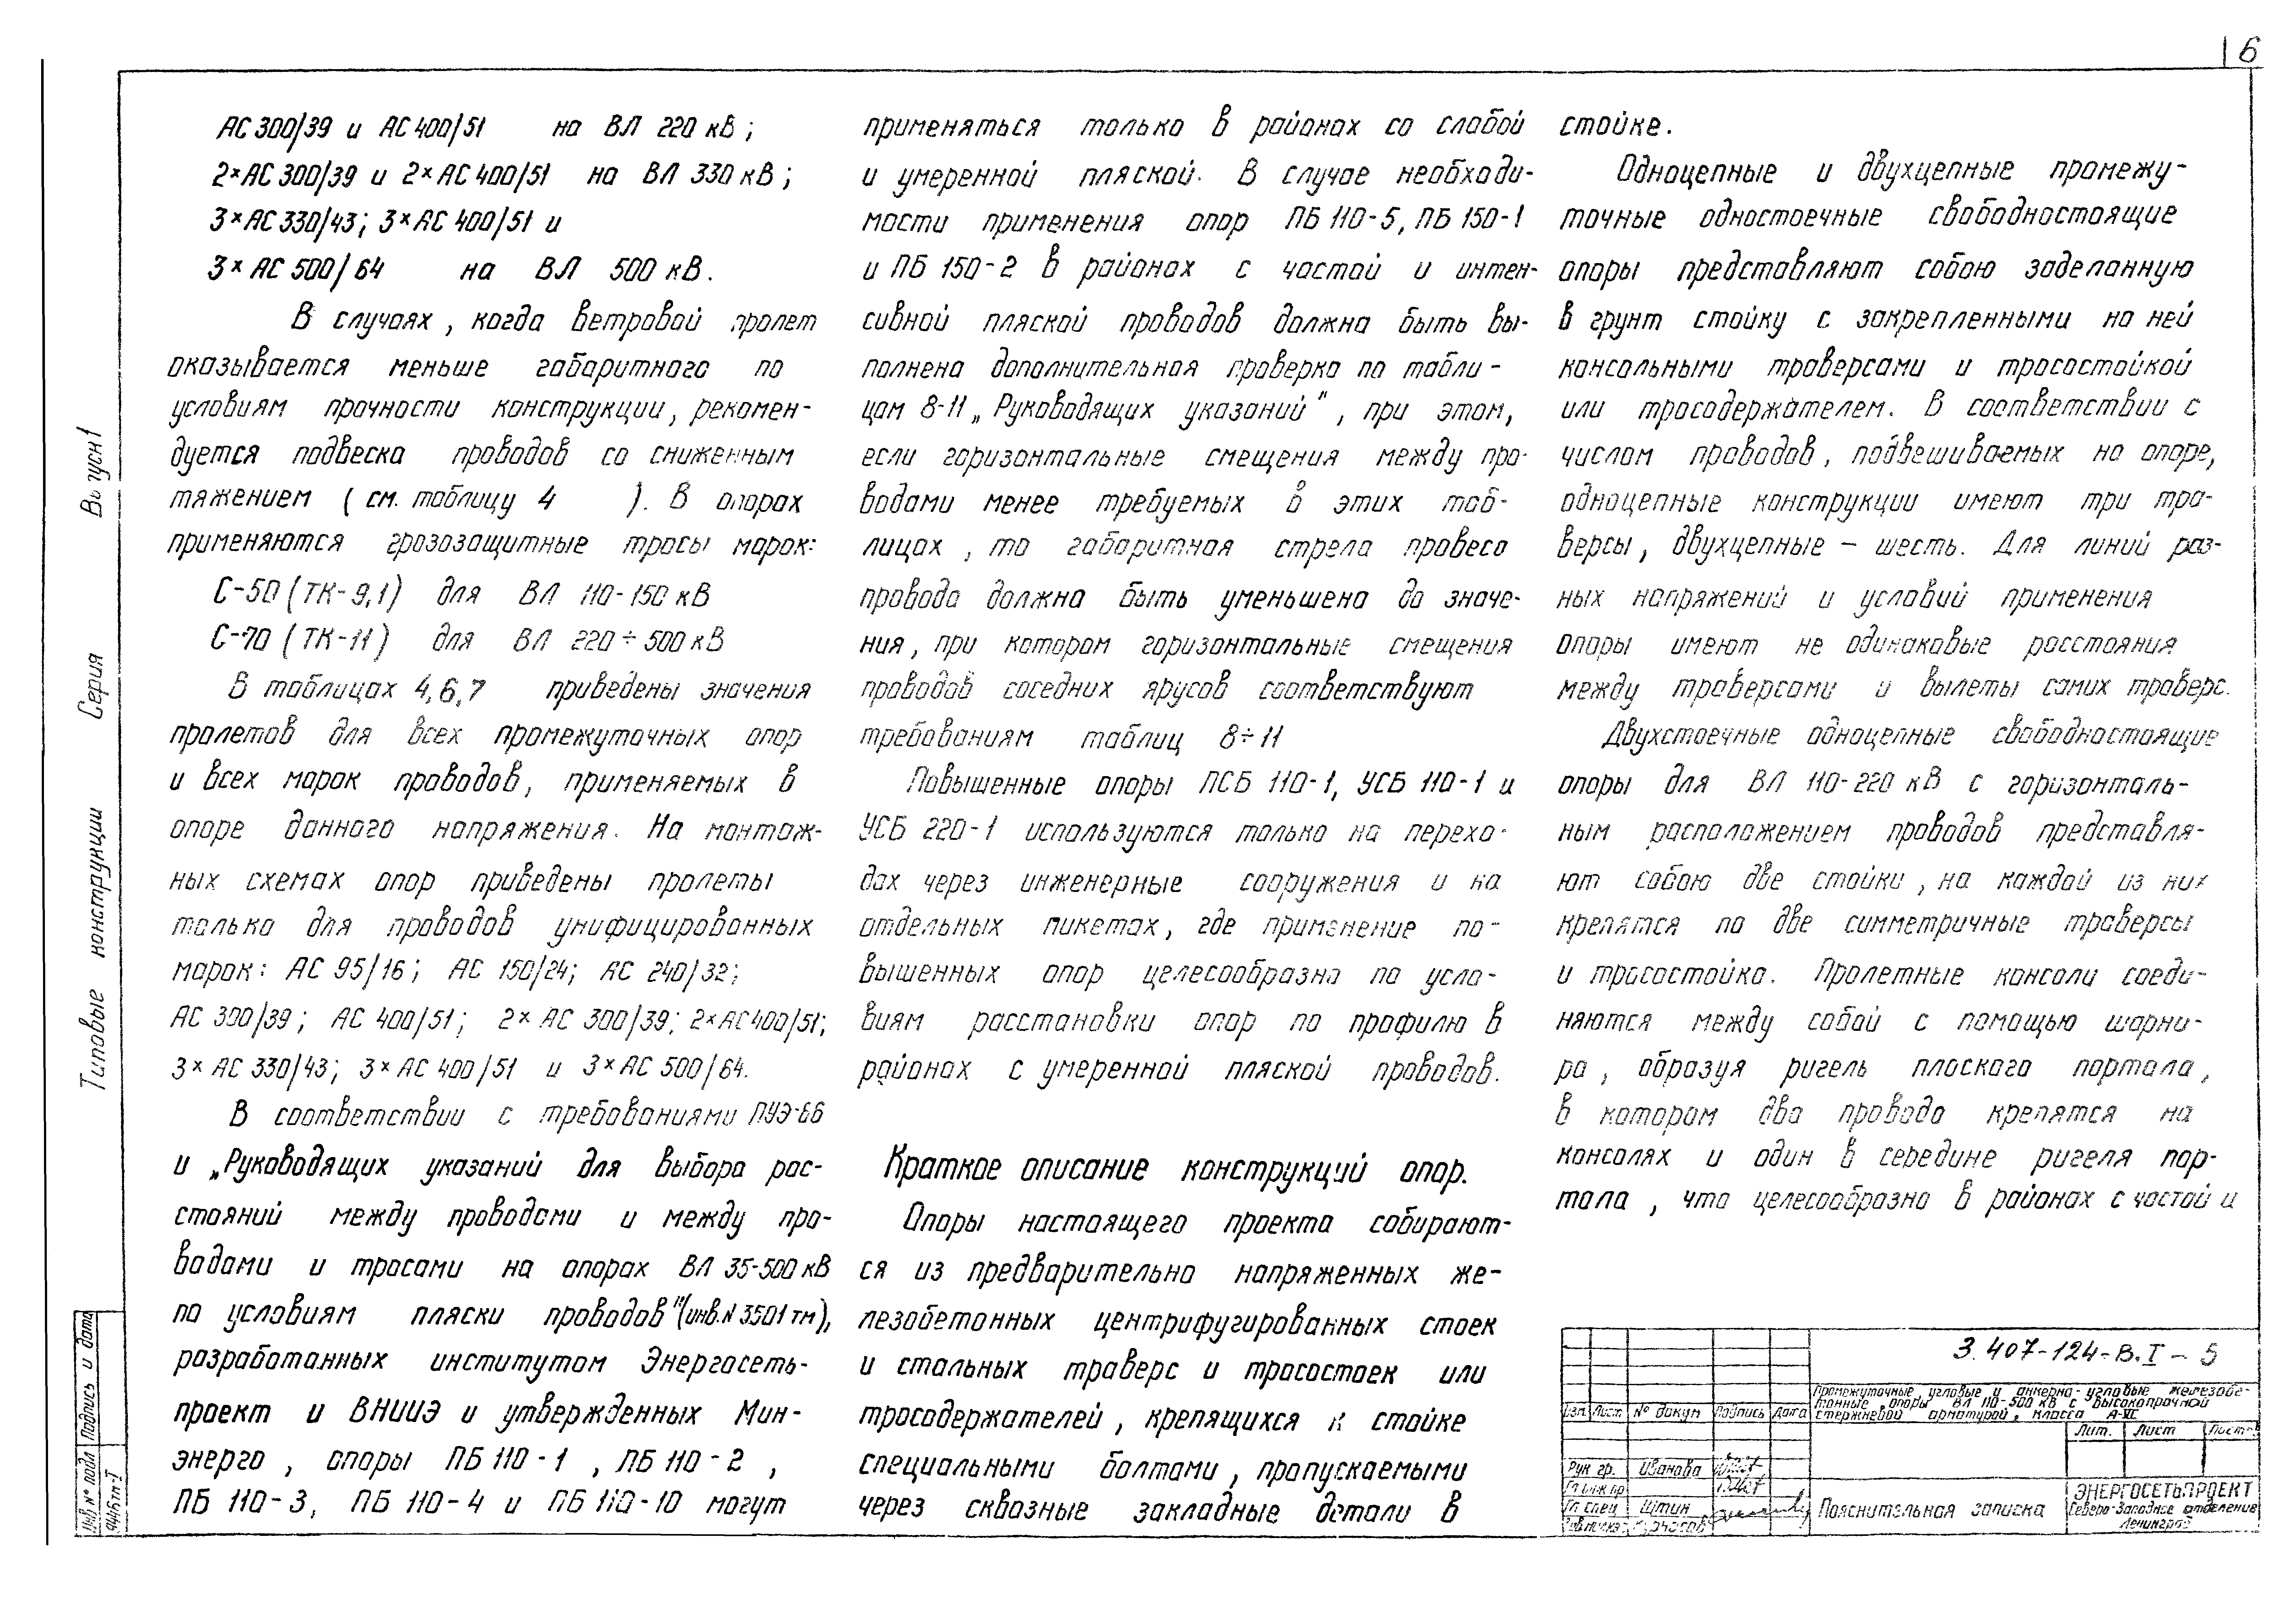 6
АС 300/39 и АС 400/51 на ВЛ 220 кВ;
2×АС 300/39 и 2×АС 400/51 на ВЛ 330 кВ;
3×АС 330/43; 3×АС 400/51 и
3×АС 500/64 на ВЛ 500 кВ.
В случаях, когда ветровой пролет
оказывается меньше габаритного по
условиям прочности конструкции, рекомен-
дуется подвеска проводов со сниженным
тяжением (см. таблицу 4 ). В опорах
применяются грозозащитные тросы марок:
С-50 (ТК-9,1) для ВЛ 110-150 кВ
С-70 (ТК-11) для ВЛ 220÷500 кВ
В таблицах 4,6,7 приведены значения
пролетов для всех промежуточных опор
и всех марок проводов, применяемых в
опоре данного напряжения. На монтаж-
ных схемах опор приведены пролеты
только для проводов унифицированных
марок: АС 95/16; АС 150/24; АС 240/32;
АС 300/39; АС 400/51; 2×АС 300/39; 2×АС 400/51;
3×АС 330/43; 3×АС 400/51 и 3×АС 500/64.
В соответствии с требованиями ПУЭ-66
и „Руководящих указаний для выбора рас-
стояний между проводами и между про-
водами и тросами на опорах ВЛ 35-500 кВ
по условиям пляски проводов" (инв. N 3501 тм),
разработанных институтом Энергосеть-
проект и ВНИИЭ и утвержденных Мин-
энерго, опоры ПБ 110-1, ПБ 110-2,
ПБ 110-3, ПБ 110-4 и ПБ 110-10 могут
применяться только в районах со слабой
и умеренной пляской. В случае необходи-
мости применения опор ПБ 110-5, ПБ 150-1
и ПБ 150-2 в районах с частой и интен-
сивной пляской проводов должна быть вы-
полнена дополнительная проверка по табли-
цам 8-11 „Руководящих указаний", при этом,
если горизонтальные смещения между про-
водами менее требуемых в этих таб-
лицах, то габаритная стрела провеса
провода должна быть уменьшена до значе-
ния, при котором горизонтальные смещения
проводов соседних ярусов соответствуют
требованиям таблиц 8÷11
Повышенные опоры ПСБ 110-1, УСБ 110-1 и
УСБ 220-1 используются только на перехо-
дах через инженерные сооружения и на
отдельных пикетах, где применение по-
вышенных опор целесообразно по усло-
виям расстановки опор по профилю в
районах с умеренной пляской проводов.
Краткое описание конструкций опор.
Опоры настоящего проекта собирают-
ся из предварительно напряженных же-
лезобетонных центрифугированных стоек
и стальных траверс и тросостоек или
тросодержателей, крепящихся к стойке
специальными болтами, пропускаемыми
через сквозные закладные детали в
стойке.
Одноцепные и двухцепные промежу-
точные одностоечные свободностоящие
опоры представляют собою заделанную
в грунт стойку с закрепленными на ней
консольными траверсами и тросостойкой
или тросодержателем. В соответствии с
числом проводов, подвешиваемых на опоре,
одноцепные конструкции имеют три тра-
версы, двухцепные – шесть. Для линий раз-
ных напряжений и условий применения
опоры имеют не одинаковые расстояния
между траверсами и вылеты самих траверс.
Двухстоечные одноцепные свободностоящие
опоры для ВЛ 110-220 кВ с горизонталь-
ным расположением проводов представля-
ют собою две стойки, на каждой из них
крепятся по две симметричные траверсы
и тросостойка. Пролетные консоли соеди-
няются между собой с помощью шарни-
ра, образуя ригель плоского портала,
в котором два провода крепятся на
консолях и один в середине ригеля пор-
тала, что целесообразно в районах с частой и
Типовые конструкции Серия Выпуск 1
Инв № подл Подпись и дата
9446тм-I
3.407-124-В.I-5
Промежуточные, угловые и анкерно-угловые железобе-
тонные опоры ВЛ 110-500 кВ с высокопрочной
стержневой арматурой, класса А-VI
Изм. Лист № докум Подпись Дата
Лит. Лист Лист
Рук гр. Иванова
Гл инж пр
Гл спец Штин
Пояснительная записка
ЭНЕРГОСЕТЬПРОЕКТ
Северо-Западное отделение
Ленинград